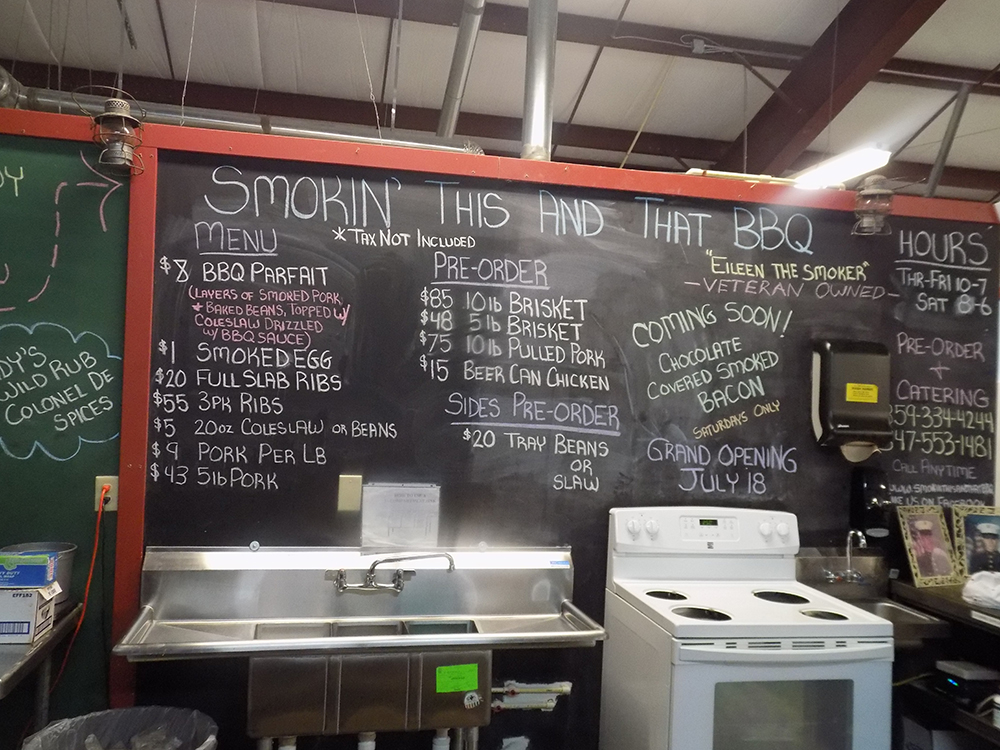 SMOKIN' THIS AND THAT BBQ
MENU
*TAX NOT INCLUDED
$8 BBQ PARFAIT
(LAYERS OF SMOKED PORK
+ BAKED BEANS, TOPPED W/
COLESLAW DRIZZLED
W/ BBQ SAUCE)
$1 SMOKED EGG
$20 FULL SLAB RIBS
$55 3PK RIBS
$5 20oz COLESLAW OR BEANS
$9 PORK PER LB
$43 5lb PORK
PRE-ORDER
$85 10lb BRISKET
$48 5lb BRISKET
$75 10lb PULLED PORK
$15 BEER CAN CHICKEN
SIDES PRE-ORDER
$20 TRAY BEANS
OR
SLAW
"EILEEN THE SMOKER"
-VETERAN OWNED-
COMING SOON!
CHOCOLATE
COVERED SMOKED
BACON
SATURDAYS ONLY
GRAND OPENING
JULY 18
HOURS
THR-FRI 10-7
SAT 8-6
PRE-ORDER
+
CATERING
859-334-4244
47-553-1481
CALL ANYTIME
US ON
DY
DY'S
WILD RUB
COLONEL DE
SPICES